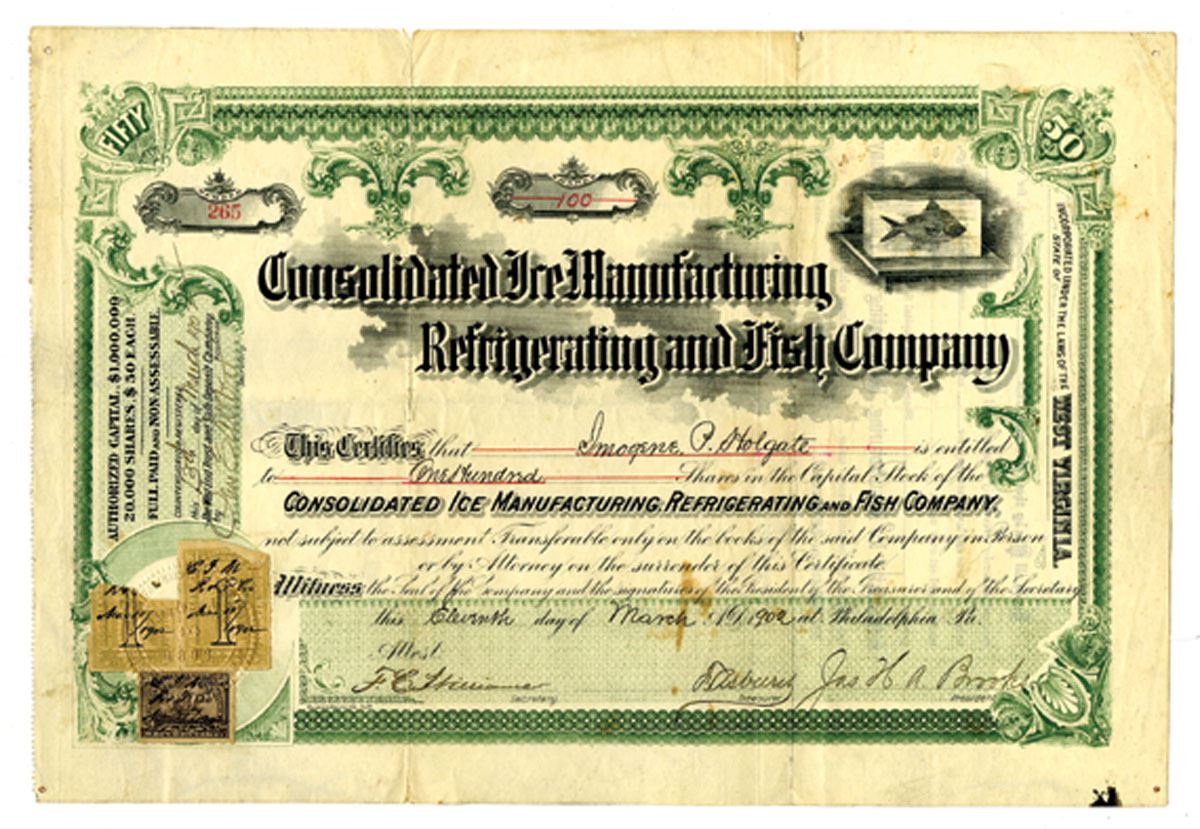 FIFTY
50
265
100
Consolidated Ice Manufacturing
Refrigerating and Fish Company
AUTHORIZED CAPITAL $1,000,000
20,000 SHARES $50 EACH.
FULL PAID AND NON ASSESSABLE
INCORPORATED UNDER THE LAWS OF THE
STATE OF
WEST VIRGINIA
This Certifies that Imogene P. Holgate is entitled
to One Hundred Shares in the Capital Stock of the
CONSOLIDATED ICE MANUFACTURING, REFRIGERATING AND FISH COMPANY,
not subject to assessment Transferable only on the books of the said Company in Person
or by Attorney on the surrender of this Certificate.
Witness the Seal of the Company and the signatures of the President of the Treasurer and of the Secretary
this Eleventh day of March 1902 at Philadelphia Pa.
Attest
Secretary
Treasurer
Jas H A Brooks
President
1
1
1902
1902